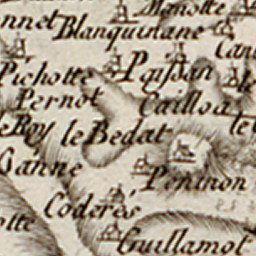 Manotte
nnet Blanquinane
Can
Pichotte Païsan
Pernot Cailloa
le Roy le Bedat
anne
Peninon
Coderes
otte
Guillamot